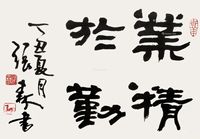 業精
於勤
丁丑夏月
張森書